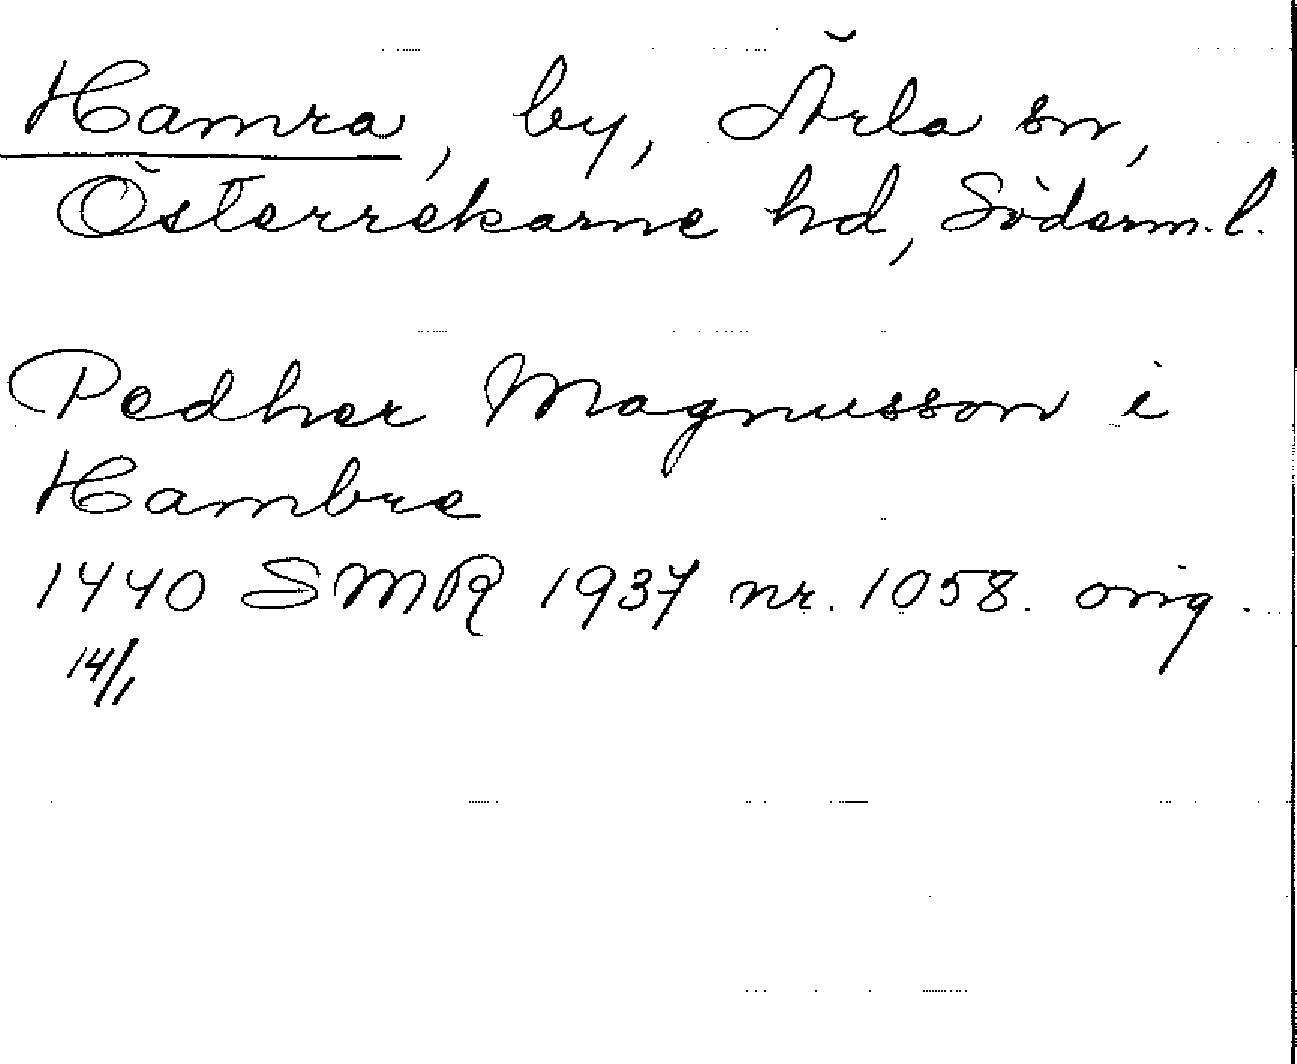 Hamra, by, Ärla sn,
Österrekarne hd, Söderm. l.
Pedher Magnusson i
Hambre
1440 SMR 1937 nr. 1058. orig.
14/1